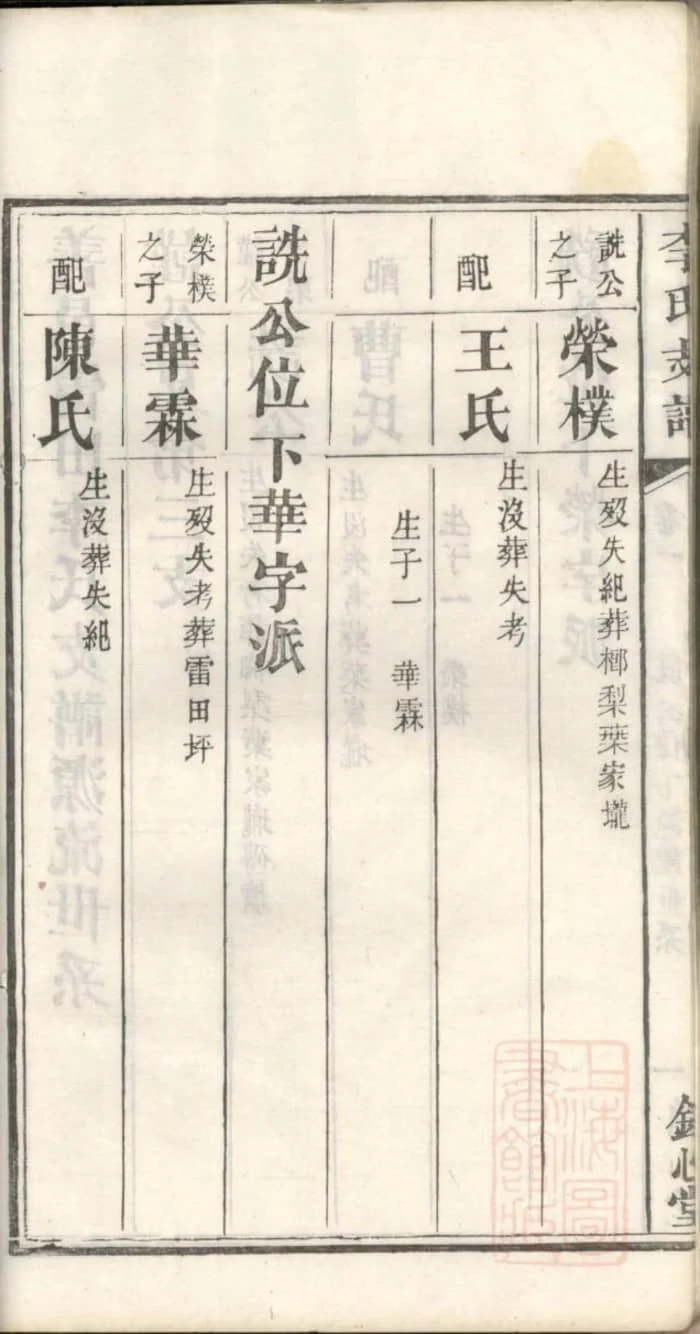 李氏支譜
卷一
一
詵公
之子
榮樸
生歿失紀葬榔梨葉家壠
配
王氏
生沒葬失考
生子一 華霖
詵公位下華字派
榮樸
之子
華霖
生歿失考葬雷田坪
配
陳氏
生沒葬失紀
上海圖
書館藏